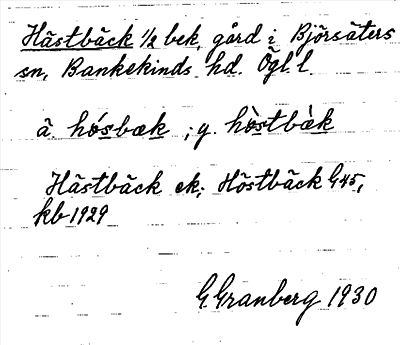 Hästbäck 1/2 bek, gård i Björsäters
sn, Bankekinds hd. Ögl. l.
ä. hó̲sbæk ; y. hò̲stbàk
Hästbäck ek; Höstbäck G45,
kb 1929
G Granberg 1930